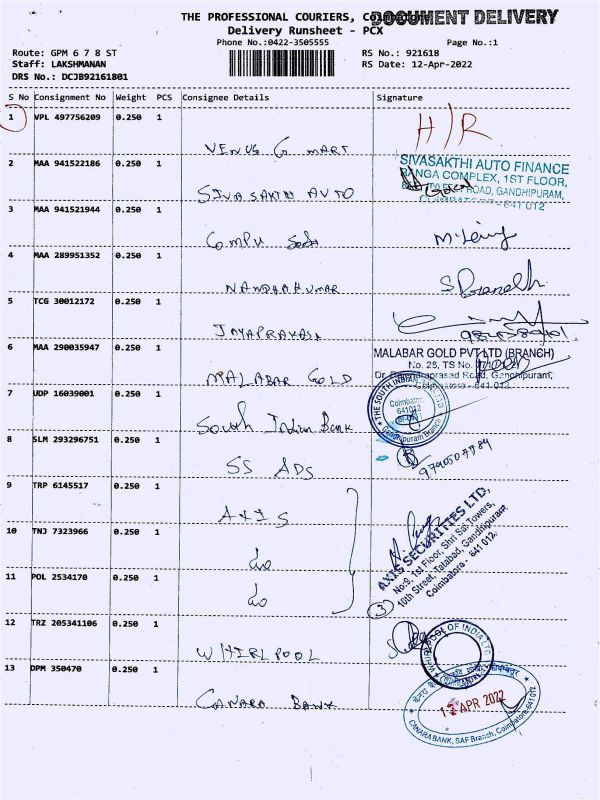 THE PROFESSIONAL COURIERS, Coimbatore
DOCUMENT DELIVERY
Delivery Runsheet - PCX
Phone No.:0422-3505555
Page No.:1
Route: GPM 6 7 8 ST
RS No.: 921618
Staff: LAKSHMANAN
RS Date: 12-Apr-2022
DRS No.: DCJB92161801
S No Consignment No Weight PCS Consignee Details Signature
1 VPL 497756209 0.250 1
H/R
VENUS G MART
2 MAA 941522186 0.250 1
SIVASAKTHI AUTO FINANCE
RANGA COMPLEX, 1ST FLOOR,
ROAD, GANDHIPURAM,
COIMBATORE - 641 012
SIVA SAKTHI AUTO
3 MAA 941521944 0.250 1
COMPU
4 MAA 289951352 0.250 1
NANDHAKUMAR
5 TCG 30012172 0.250 1
JAYAPRAKASH
6 MAA 290035947 0.250 1
MALABAR GOLD PVT LTD (BRANCH)
No. 28, TS No.
Road, Gandhipuram,
Coimbatore - 641 012
MALABAR GOLD
7 UDP 16039001 0.250 1
THE SOUTH INDIAN LTD
Coimbatore
641012
Gandhipuram Branch
South Indian Bank
8 SLM 293296751 0.250 1
SS ADS
9 TRP 6145517 0.250 1
AXIS
10 TNJ 7323966 0.250 1
do
AXIS SECURITIES LTD,
No:9, 1st Floor, Shri Sai Towers,
10th Street, Tatabad, Gandhipuram
Coimbatore - 641 012.
11 POL 2534170 0.250 1
do
3
12 TRZ 205341106 0.250 1
WHIRLPOOL OF INDIA LTD
WHIRLPOOL
13 DPM 350470 0.250 1
12 APR 2022
CANARA BANK, SAF Branch, Coimbatore-641012
CANARA BANK